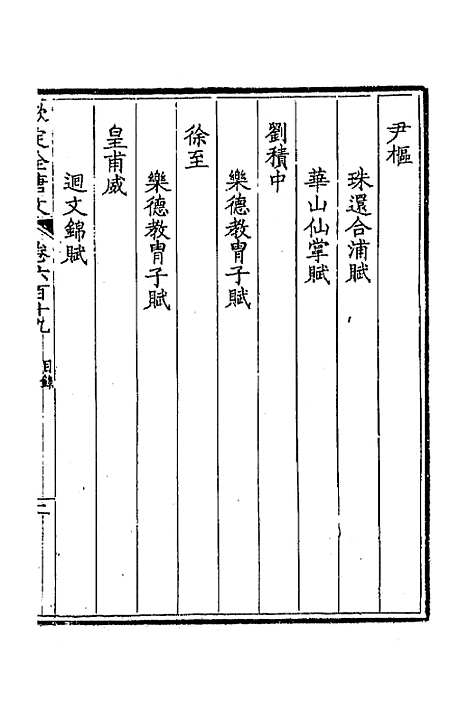 尹樞
珠還合浦賦
華山仙掌賦
劉積中
樂德教胄子賦
徐至
樂德教胄子賦
皇甫威
迴文錦賦
欽定全唐文
卷六百十九
目錄
二